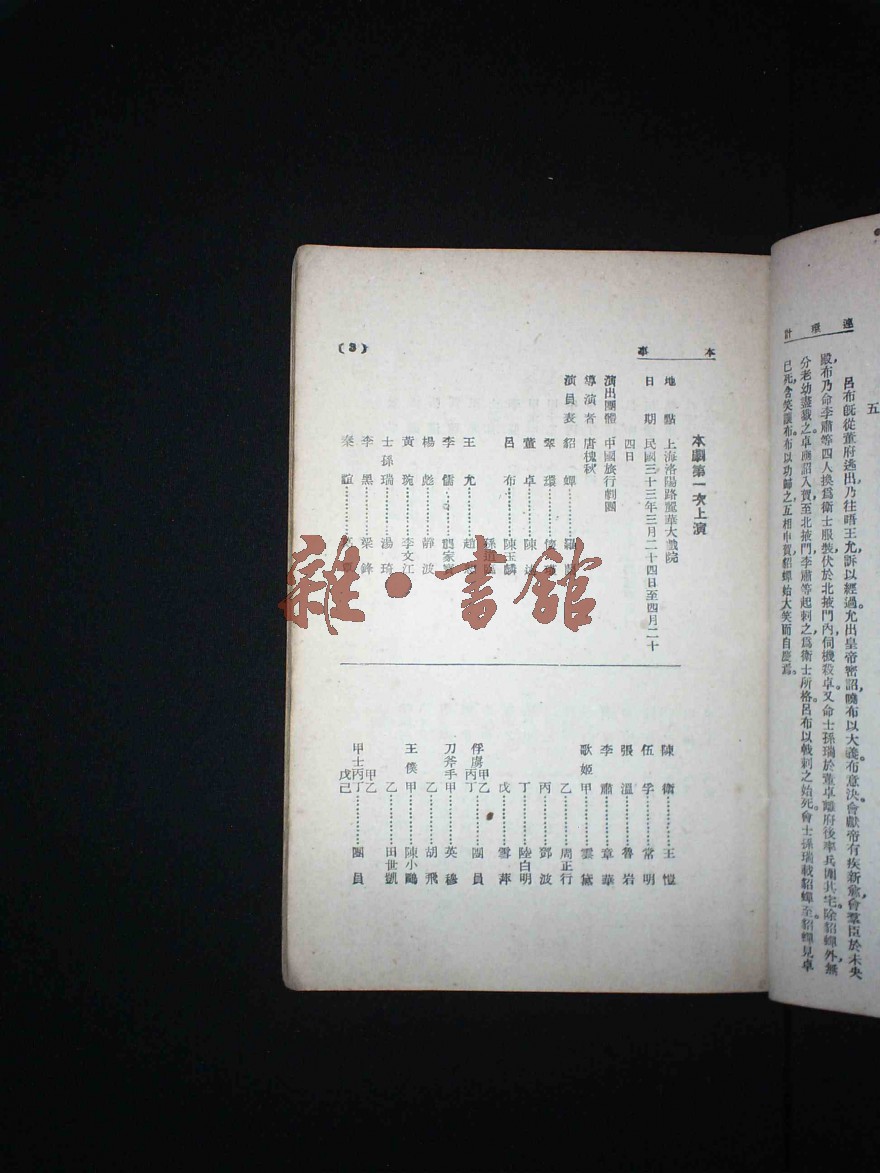 連環計
五
呂布旣從董府逃出,乃往晤王允,訴以經過。允出皇帝密詔,曉布以大義,布意決。會獻帝有疾新愈,會羣臣於未央
殿,布乃命李肅等四人換爲衛士服裝,伏於北掖門內,伺機殺卓。又命士孫瑞於董卓離府後,率兵圍其宅,除貂蟬外,無
分老幼盡戮之。卓應詔入賀,至北掖門,李肅等起刺之,爲衛士所格,呂布以戟刺之,始死。會士孫瑞載貂蟬至,貂蟬見卓
已死,含笑謝布。布以功歸之,互相申賀,貂蟬始大笑而自慶焉。
本事
本劇第一次上演
地點 上海洛陽路麗華大戲院
日期 民國三十三年三月二十四日至四月二十
四日
演出團體 中國旅行劇團
導演者 唐槐秋
演員表 貂蟬………
翠環………
董卓………陳
呂布………陳玉麟
孫道臨
王允………趙
李儒………
楊彪………靜波
黃琬………李文江
士孫瑞………湯琦
李黑………梁鋒
秦誼………
陳衛………王愷
伍孚………常明
張溫………魯岩
李肅………章華
歌姬甲………雲黛
乙………周正行
丙………鄧波
丁………陸白明
戊………雪萍
俘虜甲乙丙丁………團員
刀斧手甲………英穆
乙………胡飛
王僕甲………陳小鷗
乙………田世凱
甲士甲乙丙丁戊己………團員
(3)
雜·書館